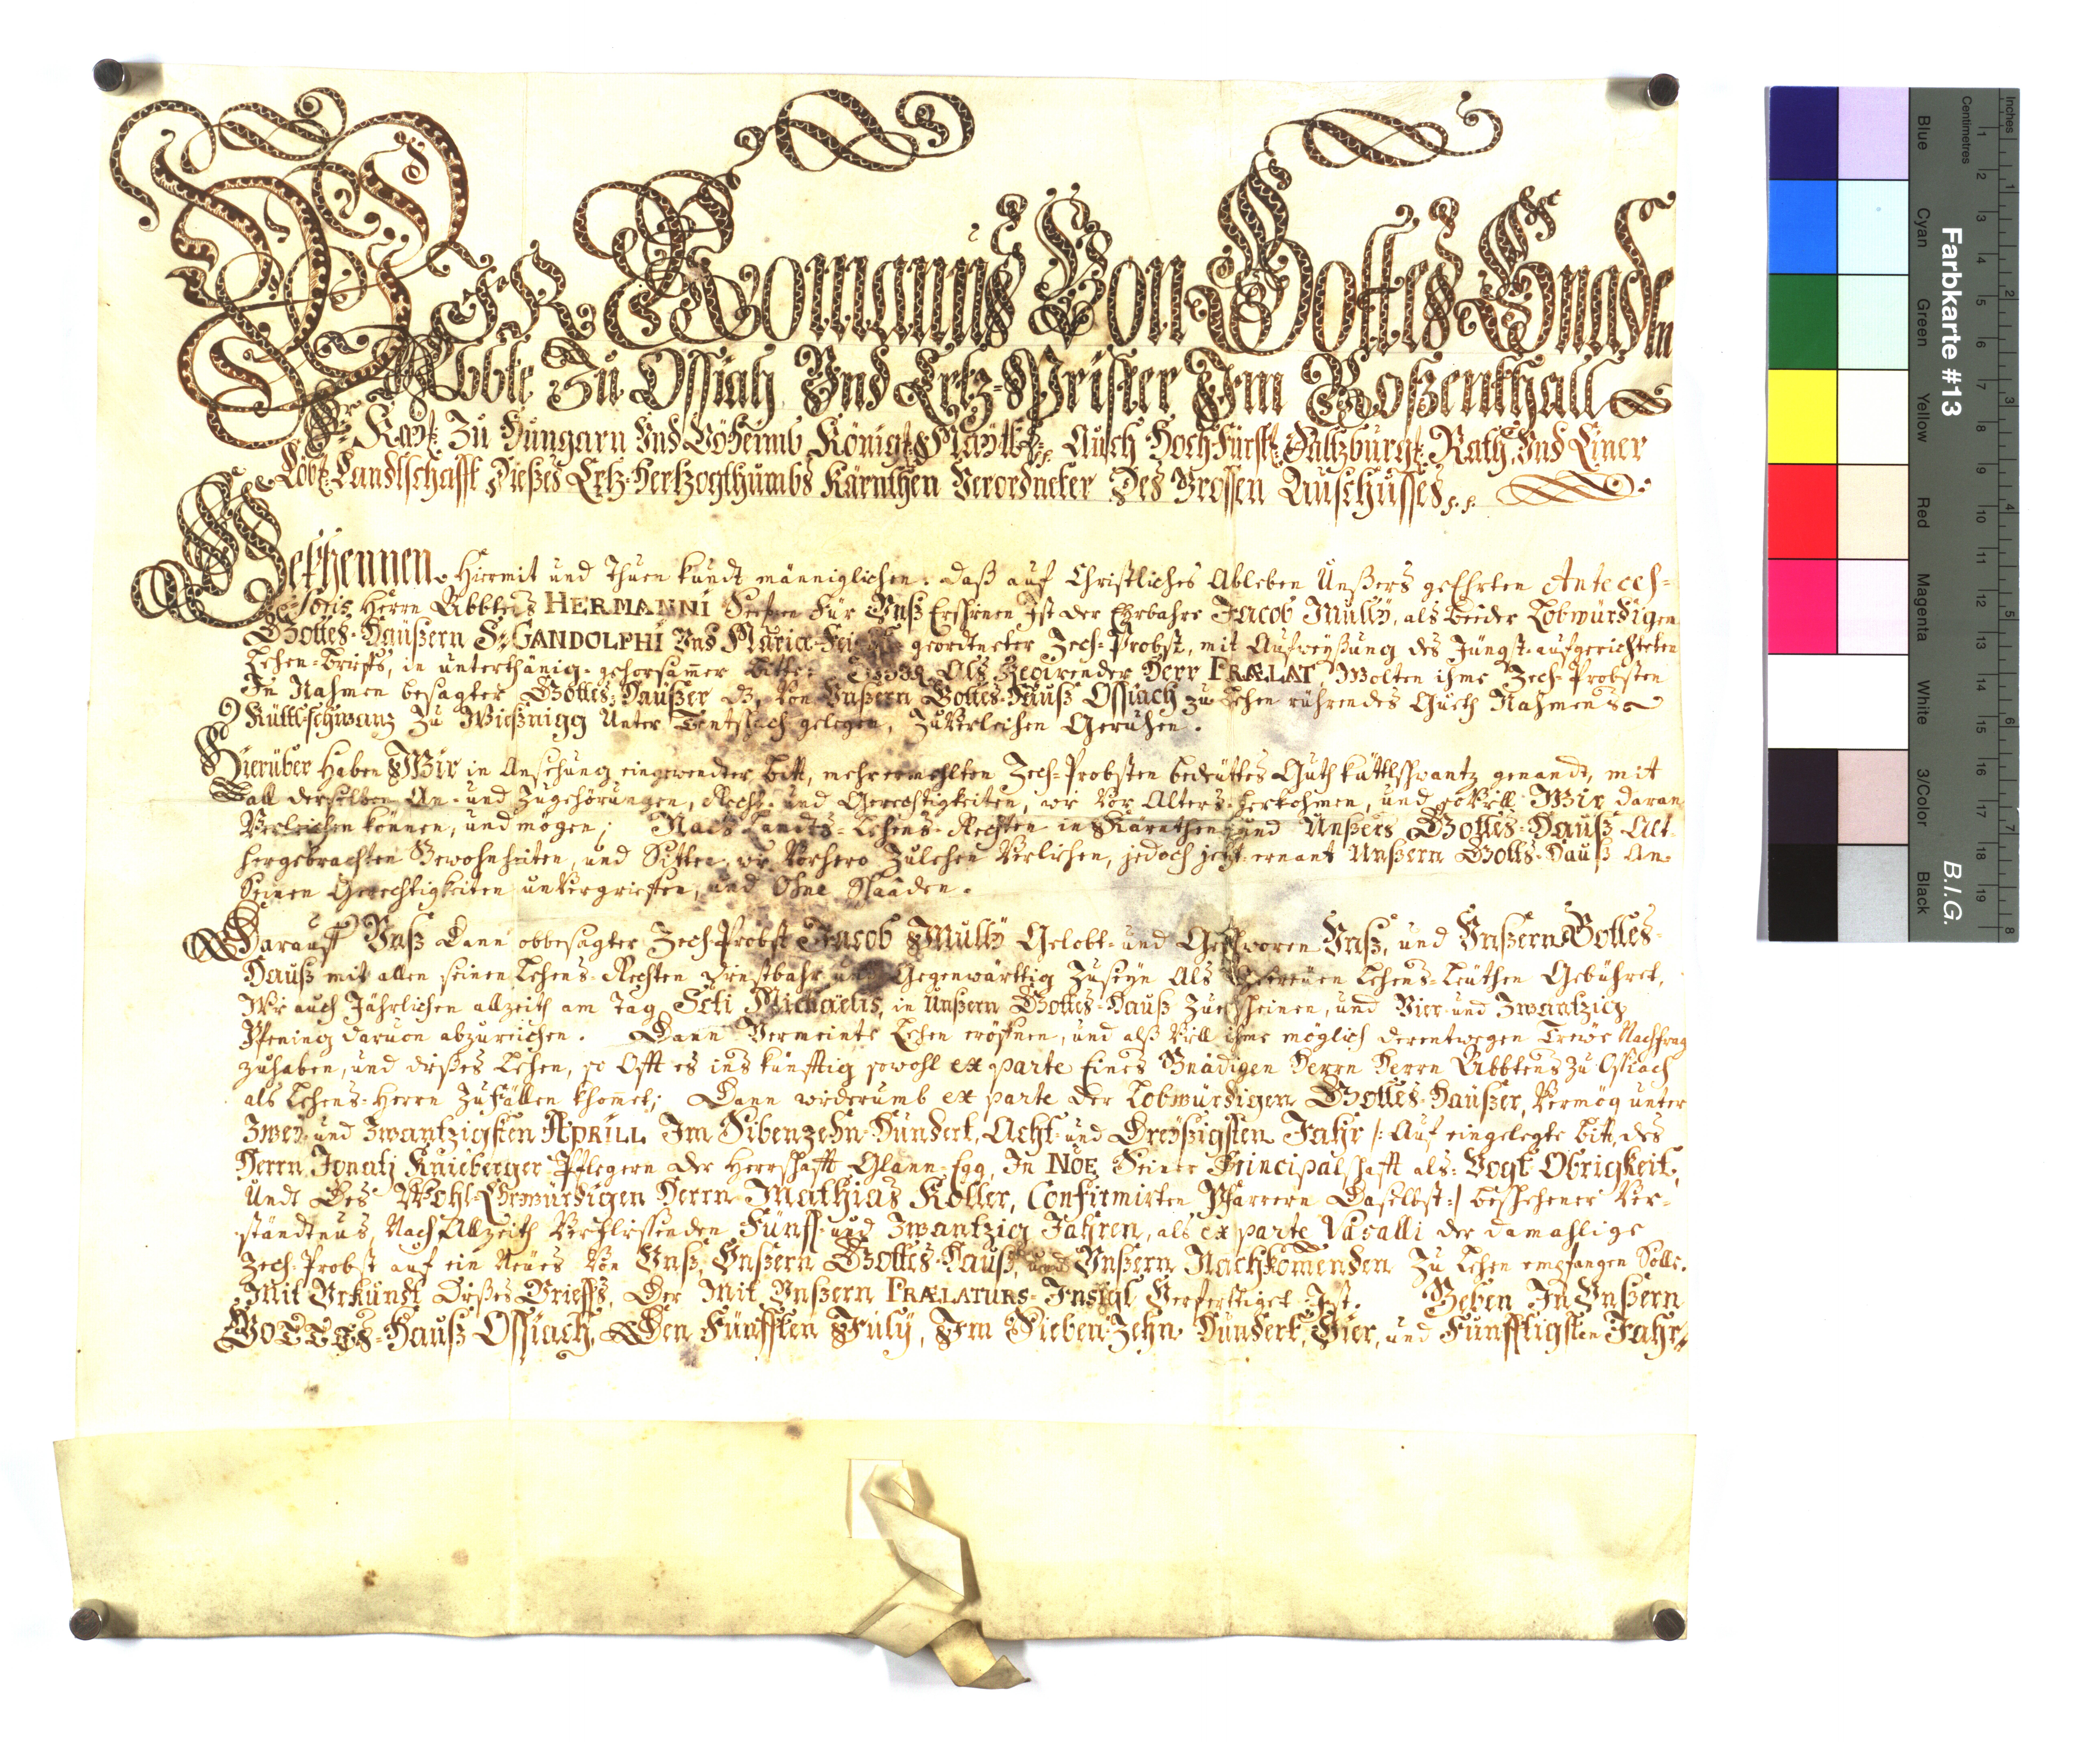 WIR Romanus Von Gottes Gnaden
Abbte Zu Ossiach Und Ertz-Prister Im Roßenthall
Kay: Zu Hungarn Und Böheimb König: Mayt: Auch Hoch Fürstl: Saltzburg: Rath, Und Einer
Löbl: Landtschafft Dießes Ertz-Hertzogthumbs Kärnthen Verordneter Des Grossen Ausschusses p. p.
Bekhennen Hiermit und Thuen kundt männiglichen: daß auf Christliches Ableben Unßers geEhrten Anteces-
soris Herrn Abbtens HERMANNI Seel: Für Unß Erschinen Ist der Ehrbahre Jacob Mully, als beider Lobwürdigen
Gottes-Haüßern S: GANDOLPHI Und Maria geordneter Zech-Probst, mit Aufweyßung des Jüngst-aufgerichteten
Lehen-Brieffs, in unterthänig-gehorsamer Bitte: Als Regirender Herr PRÆLAT Wolten ihme Zech-Probsten
In Nahmen besagter Gottes-Haußer Von Unßern Gottes-Hauß Ossiach zu Lehen rührendes Gueth Nahmens
Küttl-schwanz Zu Wießnigg Unter Tentschach gelegen, Zuverleihen Geruhen.
Hierüber Haben Wir in Ansehung eingewendter Bitt, mehrermehlten Zech-Probsten bedeuttes Guth küttlschwantz genandt, mit
all derselben An- und Zugehörungen, Recht- und Gerechtigkeiten, wie Vor Alters-herkohmen, und soVill Wir daran
Verleichen können, und mögen; Nach Landts-Lehens-Rechten in Kärnthen und Unßers Gottes-Hauß Alt-
hergebrachten Gewohnheiten, und Sitten, wie Vorhero Zulehen Verlihen, jedoch jetzt ernant Unßern Gotts-Hauß An-
Seinen Gerechtigkeiten unVergrieffen, und Ohne Schaaden.
Darauff Unß Dann obbesagter Zech-Probst Jacob Mully Gelobt- und Geschworen Unß, und Unßern Gottes-
Hauß mit allen seinen Lehens-Rechten Dienstbahr und Gegenwärttig Zuseyn Als Getreüen Lehens-Leüthen Gebühret,
Wie auch Jährlichen allzeith am Tag Scti Michaelis, in Unßern Gottes-Hauß Zuerscheinen, und Vier- und Zwantzig
Pfening daruon abzureichen. Dann Vermeinte Lehen eröffnen, und alß Vill ihme möglich derentwegen Treue Nachfrag
zuhaben, und dißes Lehen, so Offt es ins künfftig sowohl ex parte Eines Gnädigen Herrn Herrn Abbtens Zu Ossiach
als Lehens-Herrn ZuFällen khomet; Dann widerumb ex parte der Lobwürdigen Gottes-Haußer, Vermög unter
Zwey und Zwantzigsten APRILL Im Sibenzehn-Hundert, Acht- und Dreyßigsten Jahr /: Auf eingelegte Bitt, des
Herrn Ignatj Knieberger Pflegern der Herrschafft Glann-Egg, In NOE Seiner Principalschafft als: Vogt Obrigkeit,
Undt Des Wohl-Ehrwürdigen Herrn Mathias Koller, Confirmirten Pfarrern Daselbst :/ beschehener Ver-
ständtnus, Nach Allzeith Verflissenden Fünff- und Zwantzig Jahren, als ex parte Vasalli der damahlige
Zech-Probst auf ein Neues Von Unß, Unßern Gottes-Hauß, und Unßern Nachkomenden Zu Lehen empfangen Solle.
Mit Urkundt Dißes Brieffs, Der Mit Unßern PRÆLATURS-Insigl Verferttiget Ist. Geben In Unßern
GOTTES-Hauß Ossiach, Den Fünfften July, Im Sieben-Zehn-Hundert, Vier, und Fünfftigsten Jahr
Farbkarte #13
B.I.G.
Inches
Centimetres
1 2 3 4 5 6 7 8 9 10 11 12 13 14 15 16 17 18 19
1 2 3 4 5 6 7 8
Blue Cyan Green Yellow Red Magenta White 3/Color Black